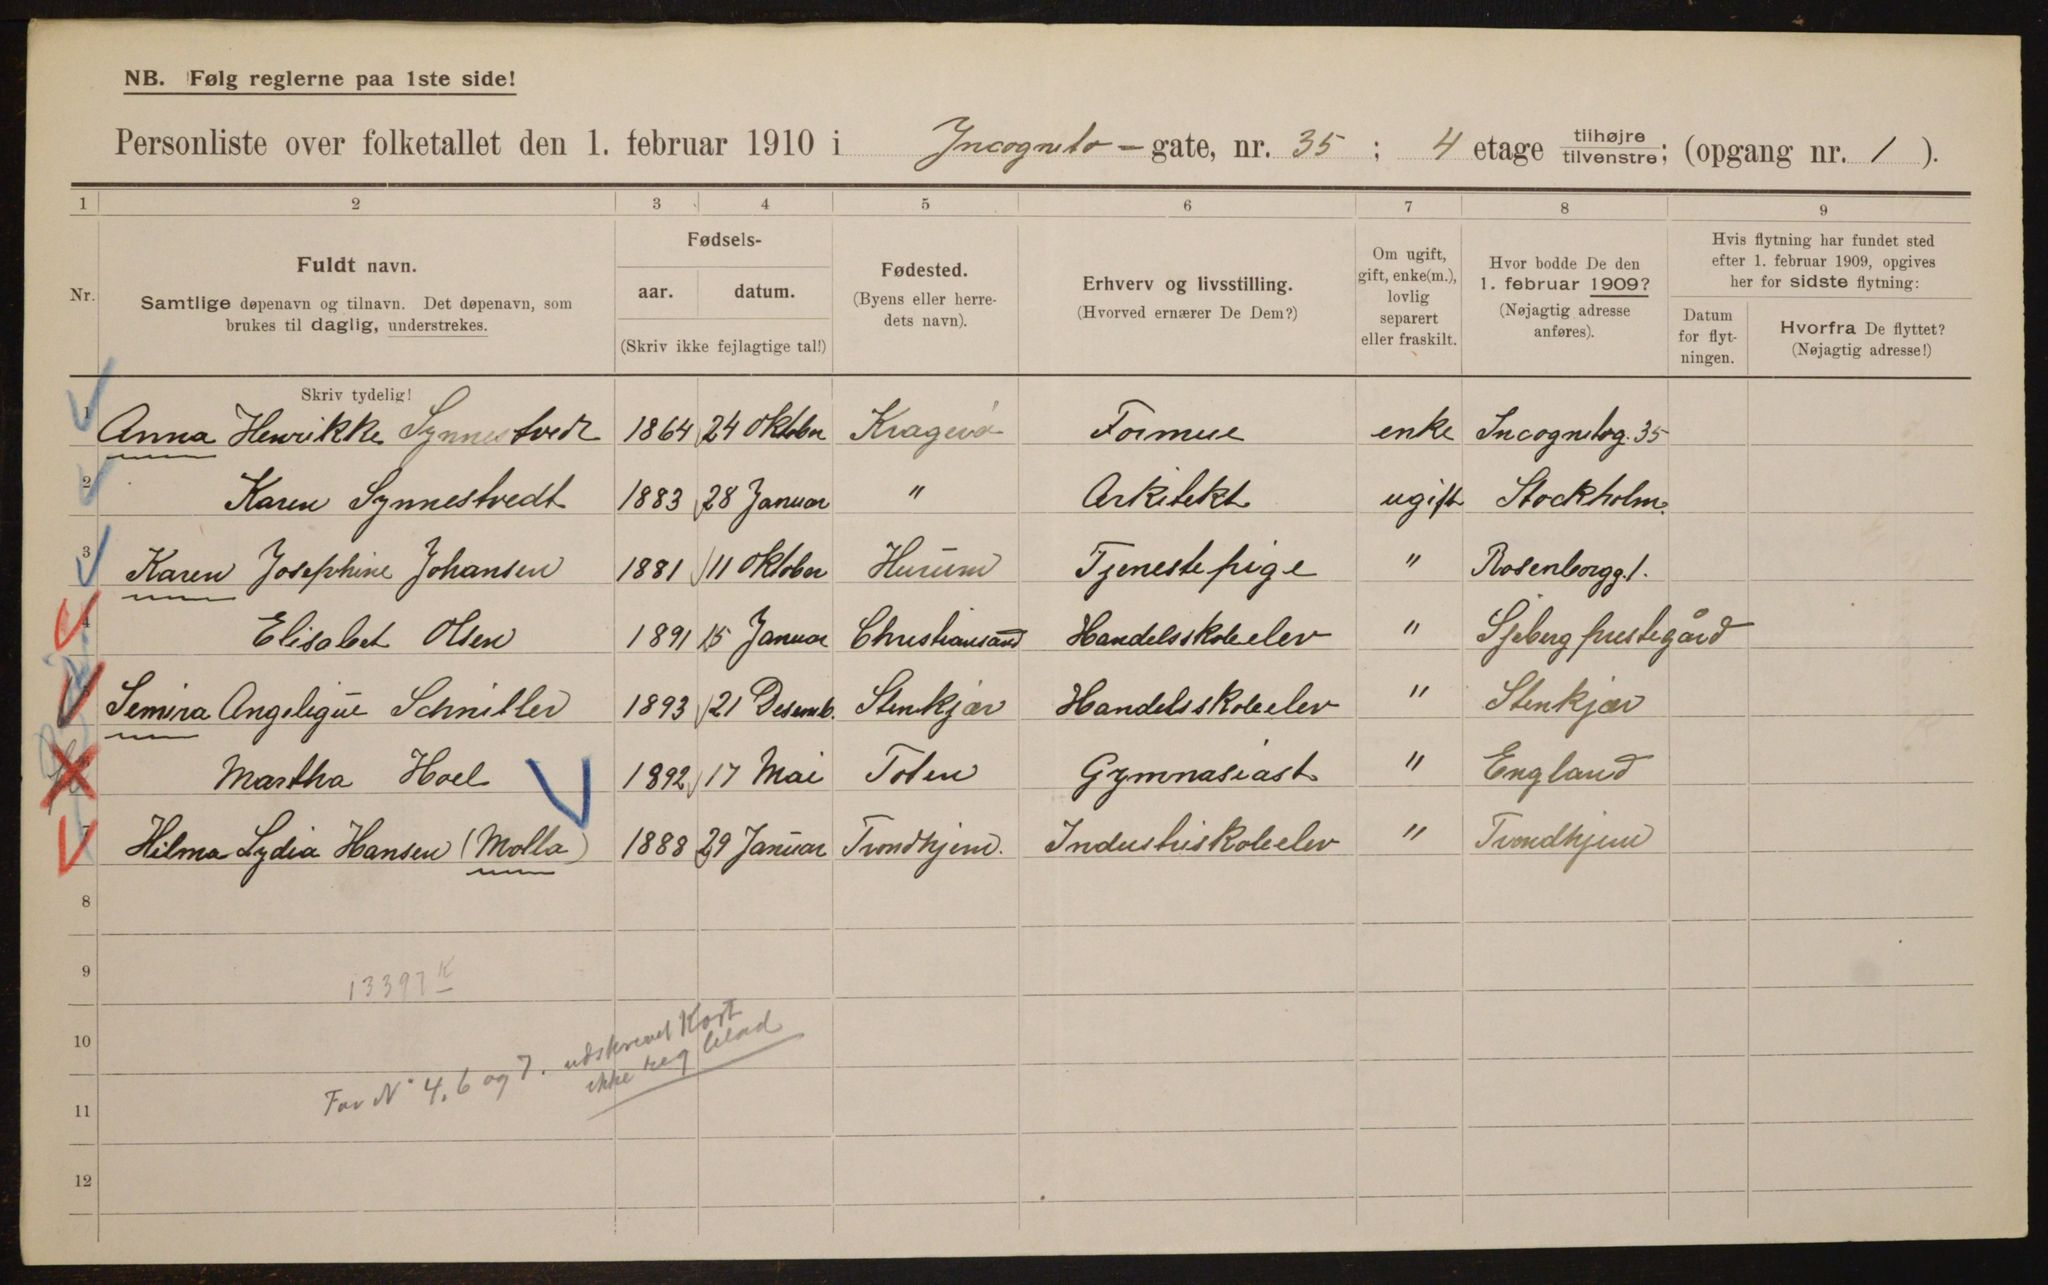 NB. Følg reglerne paa 1ste side!
Personliste over folketallet den 1. februar 1910 i Incognito - gate, nr. 35 ; 4 etage tilhøjre tilvenstre; (opgang nr. 1 ).
1 2 3 4 5 6 7 8 9
Nr.
Fuldt navn.
Samtlige døpenavn og tilnavn. Det døpenavn, som
brukes til daglig, understrekes.
Fødsels-
aar. datum.
(Skriv ikke fejlagtige tal!)
Fødested.
(Byens eller herre-
dets navn).
Erhverv og livsstilling.
(Hvorved ernærer De Dem?)
Om ugift,
gift, enke(m.),
lovlig
separert
eller fraskilt.
Hvor bodde De den
1. februar 1909?
(Nøjagtig adresse
anføres).
Hvis flytning har fundet sted
efter 1. februar 1909, opgives
her for sidste flytning:
Datum
for flyt-
ningen.
Hvorfra De flyttet?
(Nøjagtig adresse!)
Skriv tydelig!
1 Anna Henrikke Synnestvedt 1864 24 oktober Kragerø Formue enke Incognitog. 35
2 Karen Synnestvedt 1883 28 Januar " Arkitekt ugift Stockholm.
3 Karen Josephine Johansen 1881 11 Oktober Hurum Tjenestepige " Rosenborgg. 1.
4 Elisabet Olsen 1891 15 Januar Christiansand Handelsskoleelev " Sjeberg prestegård
5 Semira Angelique Schnitler 1893 21 Desemb. Stenkjær Handelsskoleelev " Stenkjær
6 Martha Hoel 1892 17 Mai Toten Gymnasiast " England
7 Hilma Lydia Hansen (Molla) 1888 29 Januar Trondhjem. Industriskoleelev " Trondhjem
8
9
13397 K
10
For N° 4, 6 og 7. udskrevet Kort
ikke reg blad
11
12